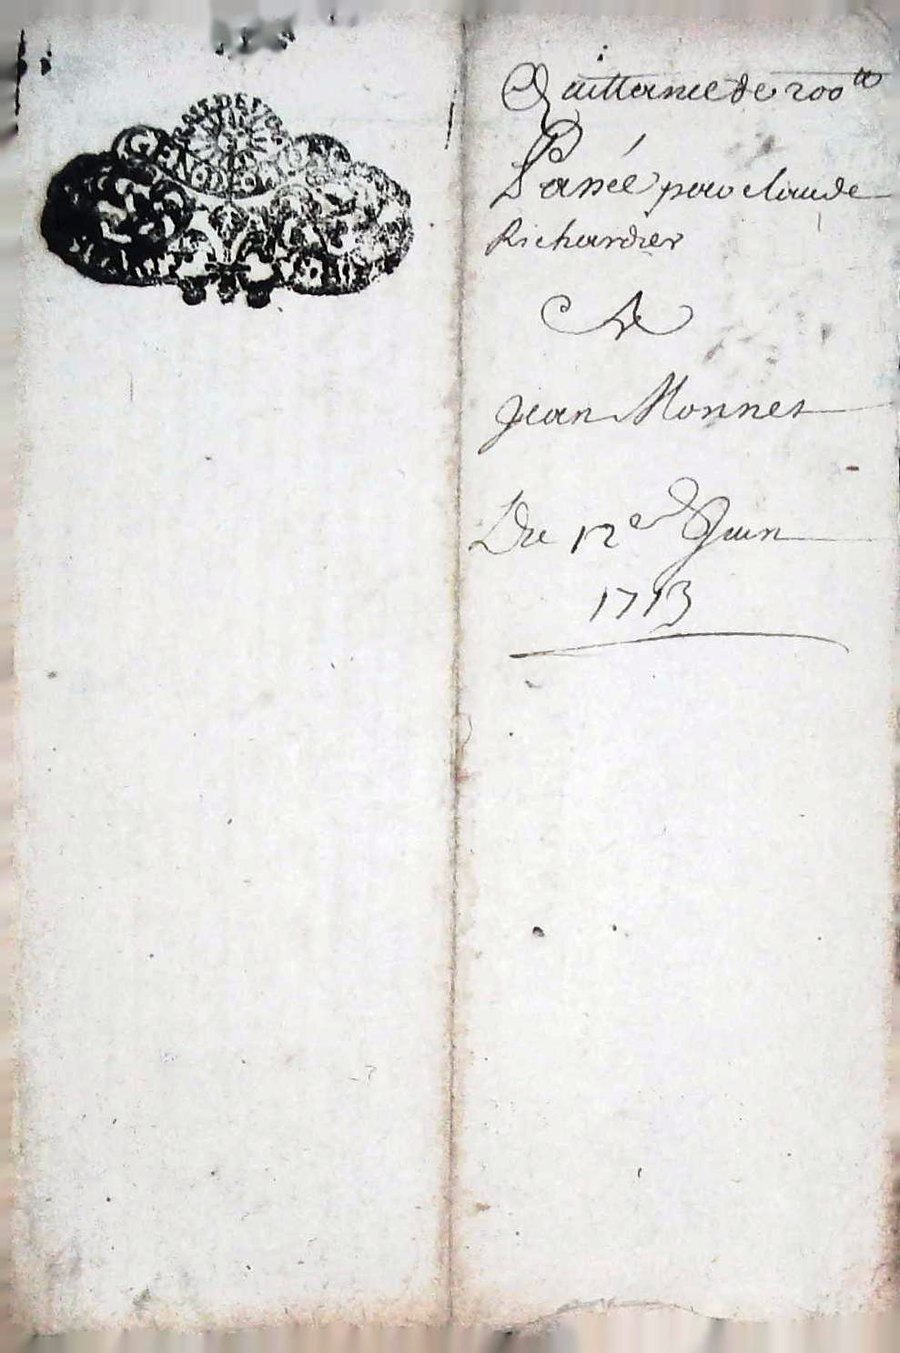 GEN
Quittance de 200ᵗᵗ
Passée pour claude
Richardier
A
Jean Monnet
Du 12e Juin
1713